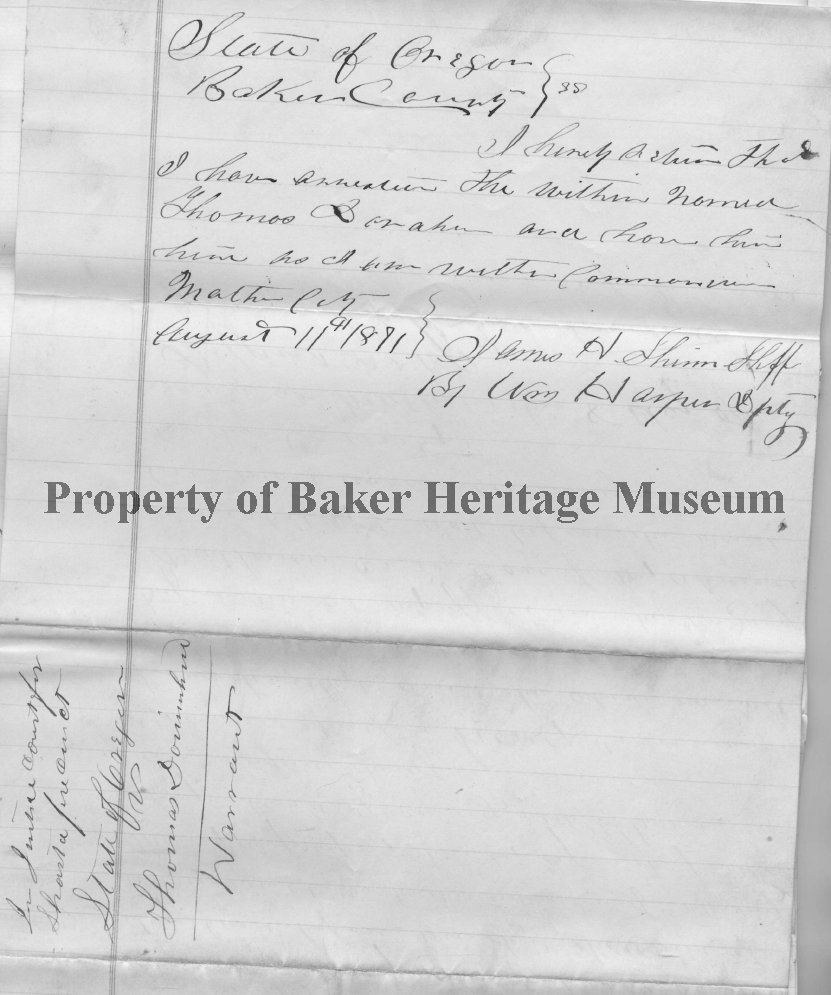 State of Oregon } ss
Baker County
I hereby return that
I have arrested the within named
Thomas Donahue and have him
here as I am within Commanded
August 11th 1871
James H Shinn Shff
By Wm Harper Dpty
Property of Baker Heritage Museum
In Justice Court for
Shasta precinct
State of Oregon
vs
Thomas
Warrant